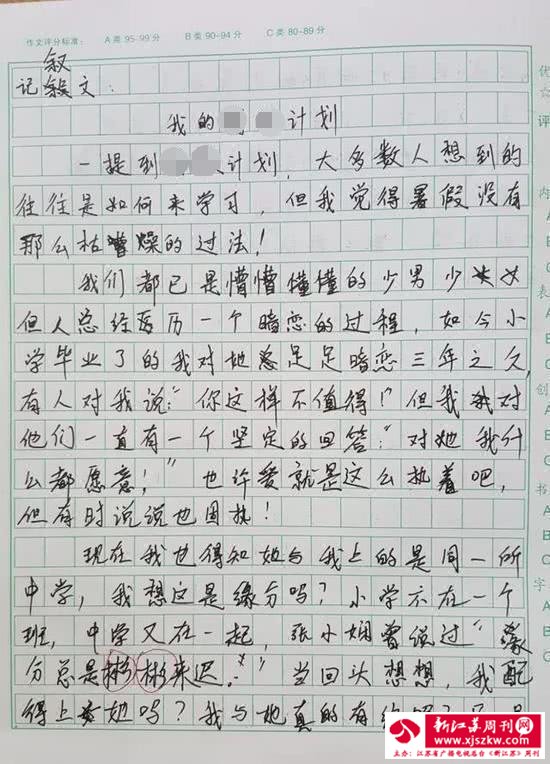 作文评分标准: A类 95-99分 B类 90-94分 C类 80-89分
优
☆
叙
记文:
评
我的计划
一提到计划,大多数人想到的
往往是如何来学习,但我觉得暑假没有
内
那么枯燥的过法!
我们都已是懵懵懂懂的少男少女
表
但人总经历一个暗恋的过程,如今小
学毕业了的我对她足足暗恋三年之久,
有人对我说:“你这样不值得!”但我对
创
他们一直有一个坚定的回答:“对她我什
么都愿意!”也许爱就是这么执着吧,
书
但有时说说也固执!
现在我也得知她与我上的是同一所
中学,我想这是缘分吗?小学不在一个
字
班,中学又在一起,张小娴曾说过“缘
分总是彬彬来迟.”当回头想想,我配
得上她吗?我与她真的有
新江苏周刊网
www.xjszkw.com
主办:江苏省广播电视总台《新江苏》周刊